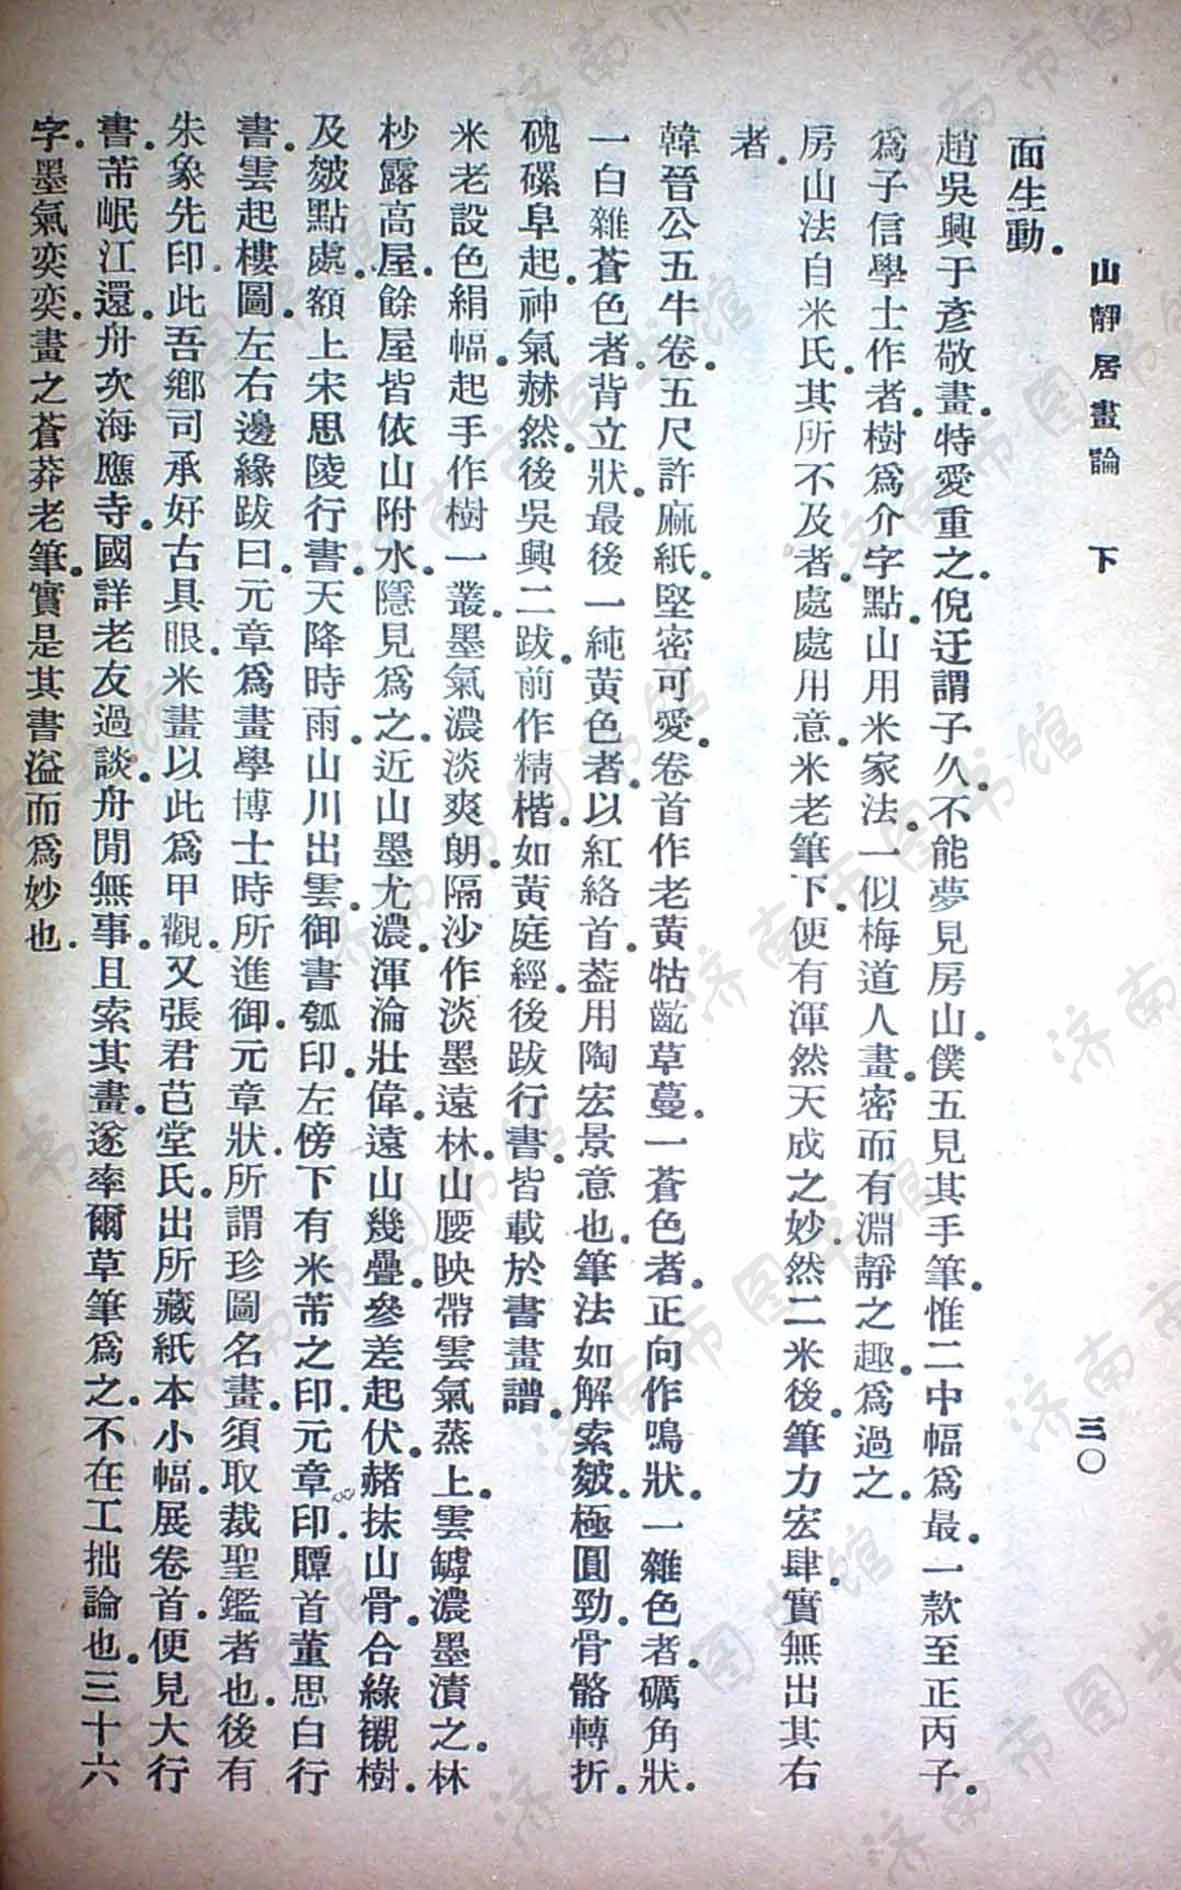 山靜居畫論　下　三〇
面生動。
趙吳興于彥敬畫。特愛重之。倪迂謂子久。不能夢見房山。僕五見其手筆。惟二中幅爲最。一款至正丙子。
爲子信學士作者。樹爲介字點。山用米家法。一似梅道人畫。密而有淵靜之趣。爲過之。
房山法白米氏。其所不及者。處處用意。米老筆下。便有渾然天成之妙。然二米後。筆力宏肆。實無出其右
者。
韓晉公五牛卷。五尺許麻紙。堅密可愛。卷首作老黃牯齕草蔓。一蒼色者。正向作鳴狀。一雜色者。礪角狀。
一白雜蒼色者。背立狀。最後一純黃色者。以紅絡首。葢用陶宏景意也。筆法如解索皴。極圓勁。骨骼轉折。
磈磥阜起。神氣赫然。後吳興二跋。前作精楷。如黃庭經。後跋行書。皆載於書畫譜。
米老設色絹幅。起手作樹一叢。墨氣濃淡爽朗。隔沙作淡墨遠林。山腰映帶雲氣蒸上。雲罅濃墨漬之。林
杪露高屋。餘屋皆依山附水。隱見爲之。近山墨尤濃。渾淪壯偉。遠山幾疊。參差起伏。赭抹山骨。合綠襯樹。
及皴點處。額上宋思陵行書。天降時雨。山川出雲。御書瓠印。左傍下有米芾之印。元章印。贉首董思白行
書。雲起樓圖。左右邊緣跋曰。元章爲畫學博士時所進御。元章狀。所謂珍圖名畫。須取裁聖鑑者也。後有
朱象先印。此吾鄉司承好古具眼。米畫以此爲甲觀。又張君芑堂氏。出所藏紙本小幅。展卷首。便見大行
書。芾岷江還。舟次海應寺。國詳老友過談。舟閒無事。且索其畫。遂率爾草筆爲之。不在工拙論也。三十六
字。墨氣奕奕。畫之蒼莽老筆。實是其書溢而爲妙也。